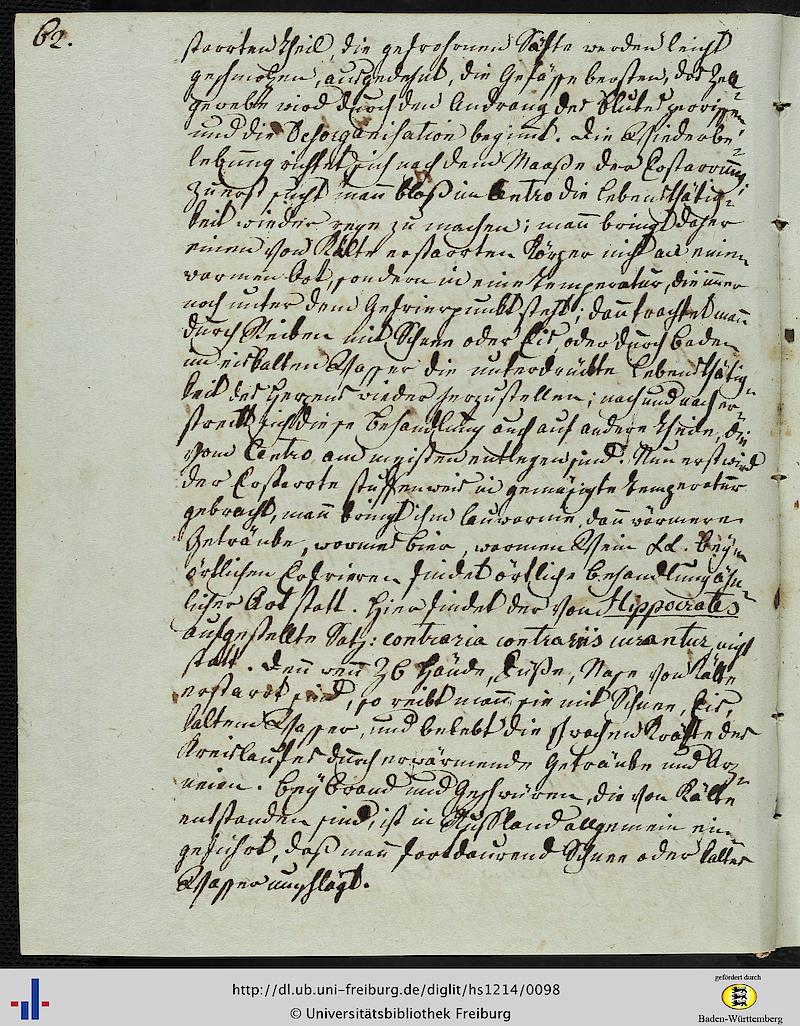 62.
starrten Theil, die gefrohrnen Säfte werden leicht
geschmolzen, ausgedehnt, die Gefässe bersten, das Zell-
gewebe wird durch den Andrang des Blutes zerrissen
und die Desorganisation beginnt. Die Wiederbe-
lebung richtet sich nach dem Maaße der Erstarrung
Zuerst sucht mann bloß im Centro die Lebensthätig-
keit wieder rege zu machen; mann bringt daher
einen von Kälte erstarrten Körper nicht an einen
warmen Ort, sondern in eine Temperatur, die immer
noch unter dem Gefrierpunkt steht; dann trachtet mann
durch Reiben mit Schnee oder Eis, oder durch Baden
im eiskalten Wasser die unterdrückte Lebensthätig-
keit des Herzens wieder herzustellen; nach und nach er-
streckt sich diese Behandlung auch auf andere Theile, die
vom Centro am meisten entlegen sind. Nun erst wird
der Erstarrte stuffenweis in gemäsigte Temperatur
gebracht, mann bringt ihm lauwarme, dann wärmere
Getränke, warmes Bier, warmen Wein &&. Beym
örtlichen Erfrieren findet örtliche Behandlung ähn-
licher Art statt. Hier findet der von Hippocrates
aufgestellte Satz: contraria contrariis curantur, nicht
statt. Denn wenn ZB Hände, Füße, Nase von Kälte
erstarrt sind, so reibt mann sie mit Schnee, Eis,
kaltem Wasser, und belebt die schwachen Kräfte des
Kreislaufes durch erwärmende Getränke und Arz-
neien. Bey Brand und Geschwüren, die von Kälte
entstanden sind, ist in Russland allgemein ein-
geführt, daß mann fortdaurend Schnee oder kaltes
Wasser umschlägt.
http://dl.ub.uni-freiburg.de/diglit/hs1214/0098
© Universitätsbibliothek Freiburg
gefördert durch
Baden-Württemberg